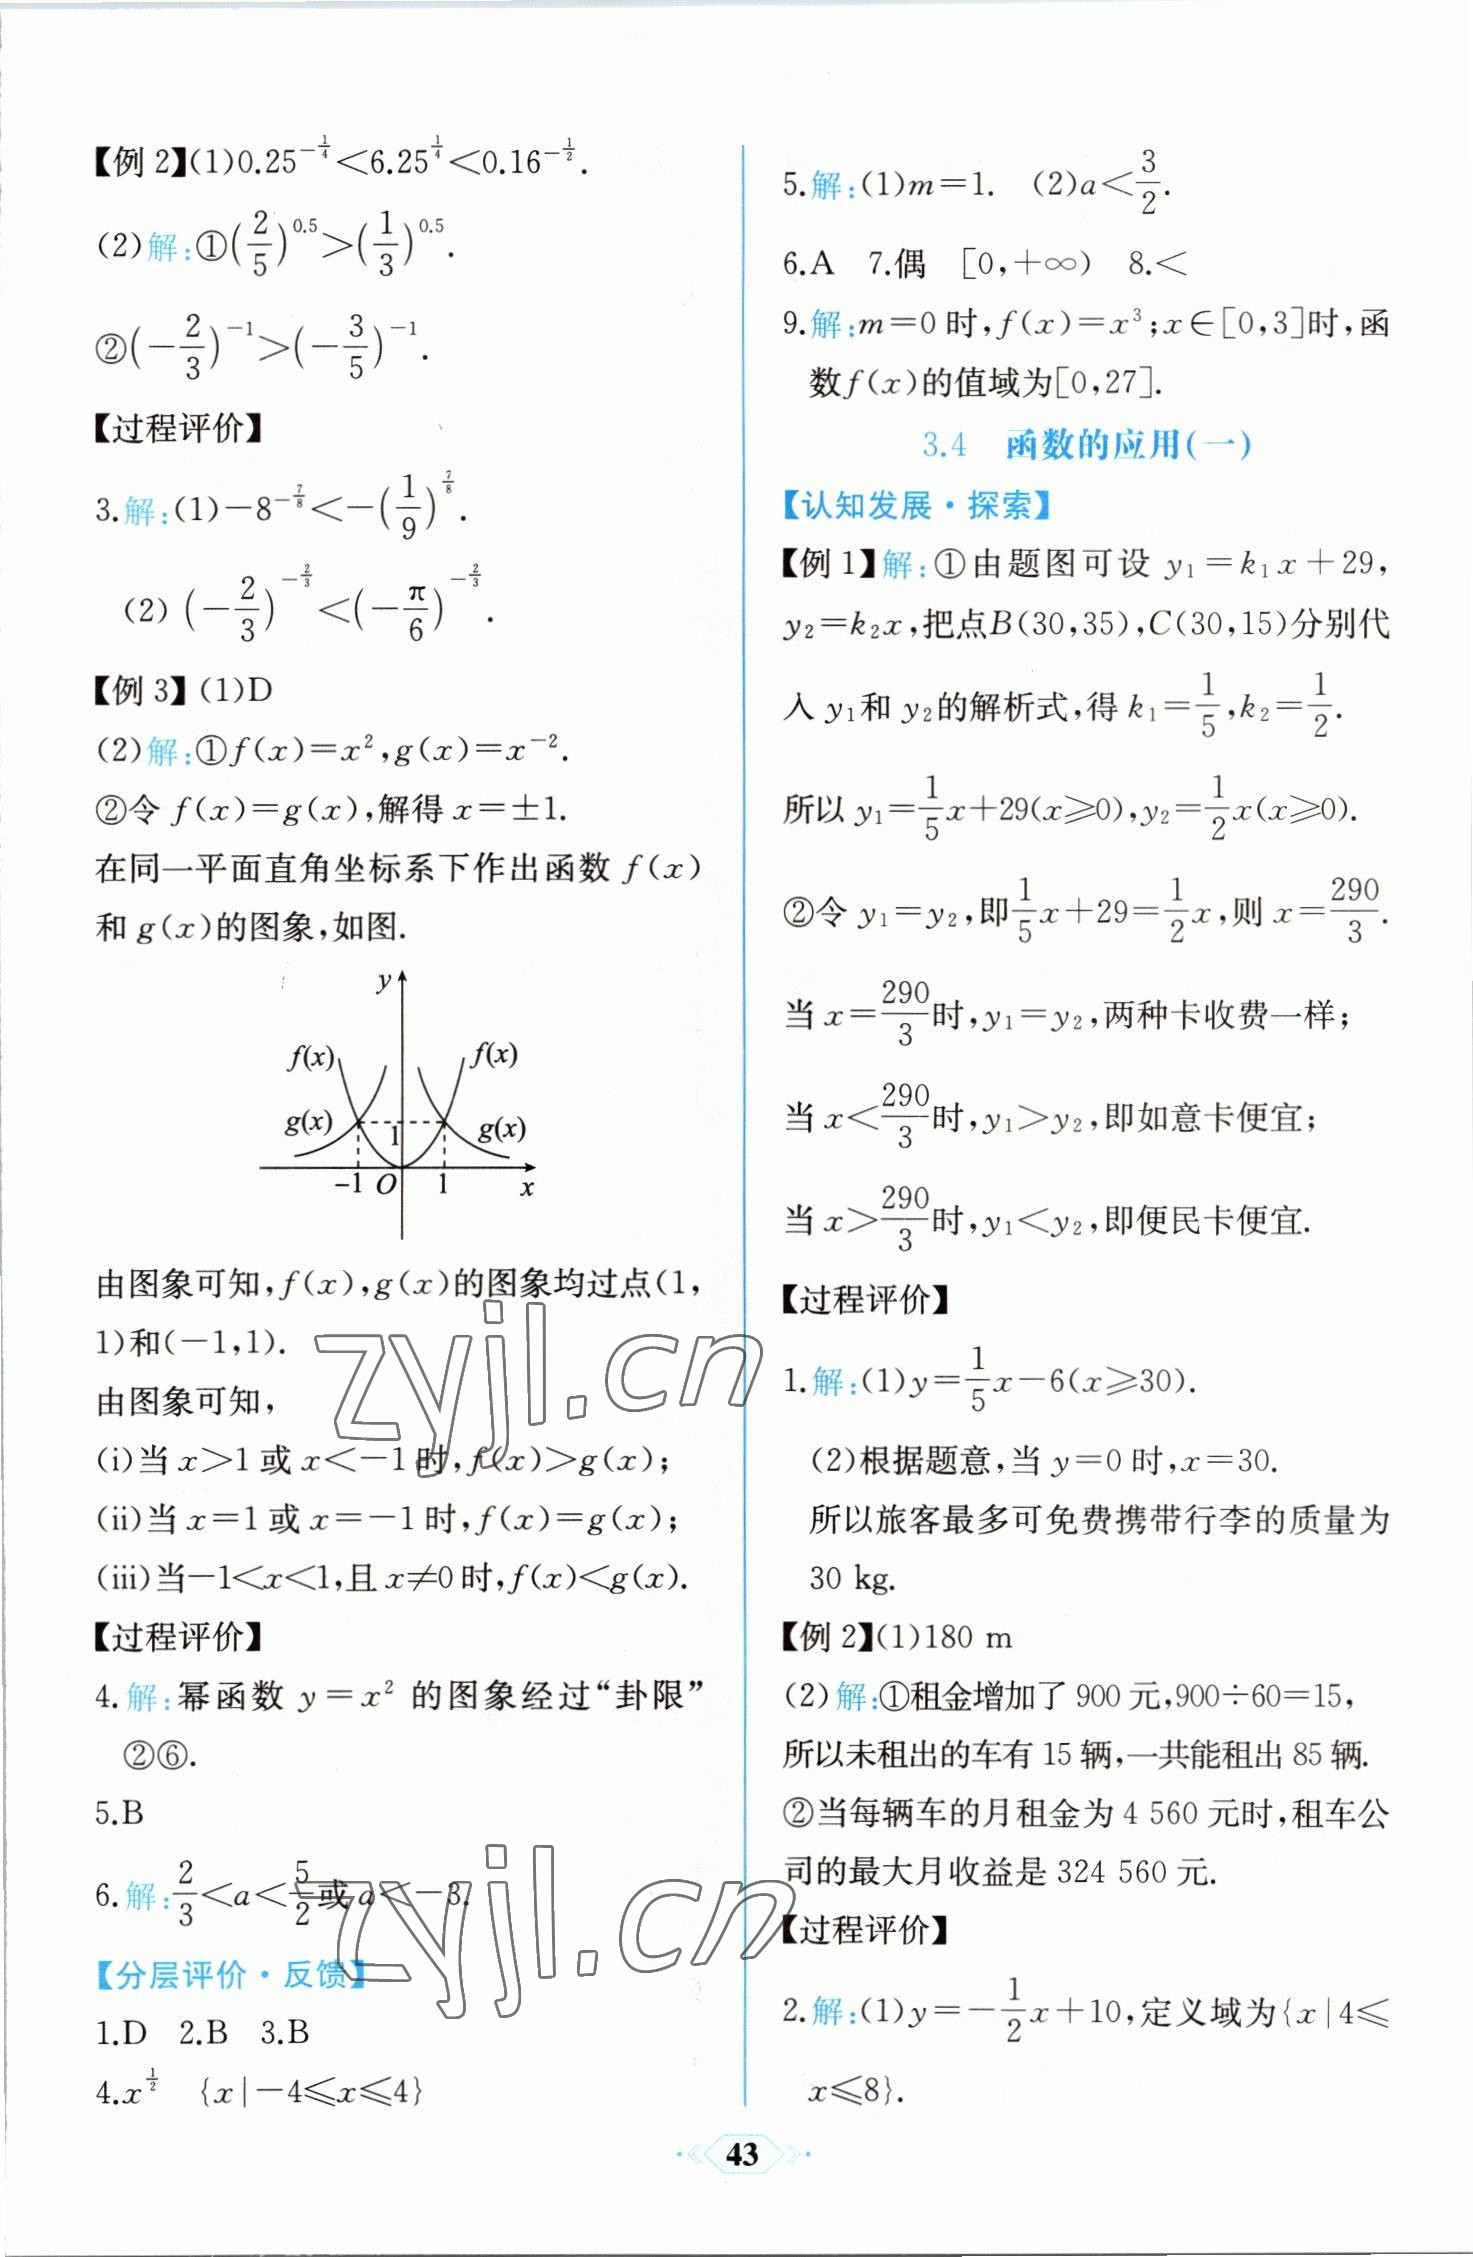 【例2】(1)0.25^{-1/4}<6.25^{1/4}<0.16^{-1/2}.
(2)解:①(2/5)^{0.5}>(1/3)^{0.5}.
②(-2/3)^{-1}>(-3/5)^{-1}.
【过程评价】
3.解:(1)-8^{-7/8}<-(1/9)^{7/8}.
(2)(-2/3)^{-2/3}<(-π/6)^{-2/3}.
【例3】(1)D
(2)解:①f(x)=x²,g(x)=x⁻².
②令 f(x)=g(x),解得 x=±1.
在同一平面直角坐标系下作出函数 f(x)
和 g(x)的图象,如图.
y
f(x) f(x)
g(x) 1 g(x)
-1 O 1 x
由图象可知,f(x),g(x)的图象均过点(1,
1)和(-1,1).
由图象可知,
(i)当 x>1 或 x<-1 时,f(x)>g(x);
(ii)当 x=1 或 x=-1 时,f(x)=g(x);
(iii)当-1<x<1,且 x≠0 时,f(x)<g(x).
【过程评价】
4.解:幂函数 y=x² 的图象经过“卦限”
②⑥.
5.B
6.解:2/3<a<5/2或 a<-3.
【分层评价·反馈】
1.D 2.B 3.B
4.x^{1/2} {x|-4≤x≤4}
5.解:(1)m=1. (2)a<3/2.
6.A 7.偶 [0,+∞) 8.<
9.解:m=0 时,f(x)=x³;x∈[0,3]时,函
数f(x)的值域为[0,27].
3.4 函数的应用(一)
【认知发展·探索】
【例1】解:①由题图可设 y₁=k₁x+29,
y₂=k₂x,把点B(30,35),C(30,15)分别代
入 y₁和 y₂的解析式,得 k₁=1/5,k₂=1/2.
所以 y₁=1/5x+29(x≥0),y₂=1/2x(x≥0).
②令 y₁=y₂,即1/5x+29=1/2x,则 x=290/3.
当 x=290/3时,y₁=y₂,两种卡收费一样;
当 x<290/3时,y₁>y₂,即如意卡便宜;
当 x>290/3时,y₁<y₂,即便民卡便宜.
【过程评价】
1.解:(1)y=1/5x-6(x≥30).
(2)根据题意,当 y=0 时,x=30.
所以旅客最多可免费携带行李的质量为
30 kg.
【例2】(1)180 m
(2)解:①租金增加了 900 元,900÷60=15,
所以未租出的车有 15 辆,一共能租出 85 辆.
②当每辆车的月租金为 4 560 元时,租车公
司的最大月收益是 324 560 元.
【过程评价】
2.解:(1)y=-1/2x+10,定义域为{x|4≤
x≤8}.
zyjl.cn
zyjl.cn
43